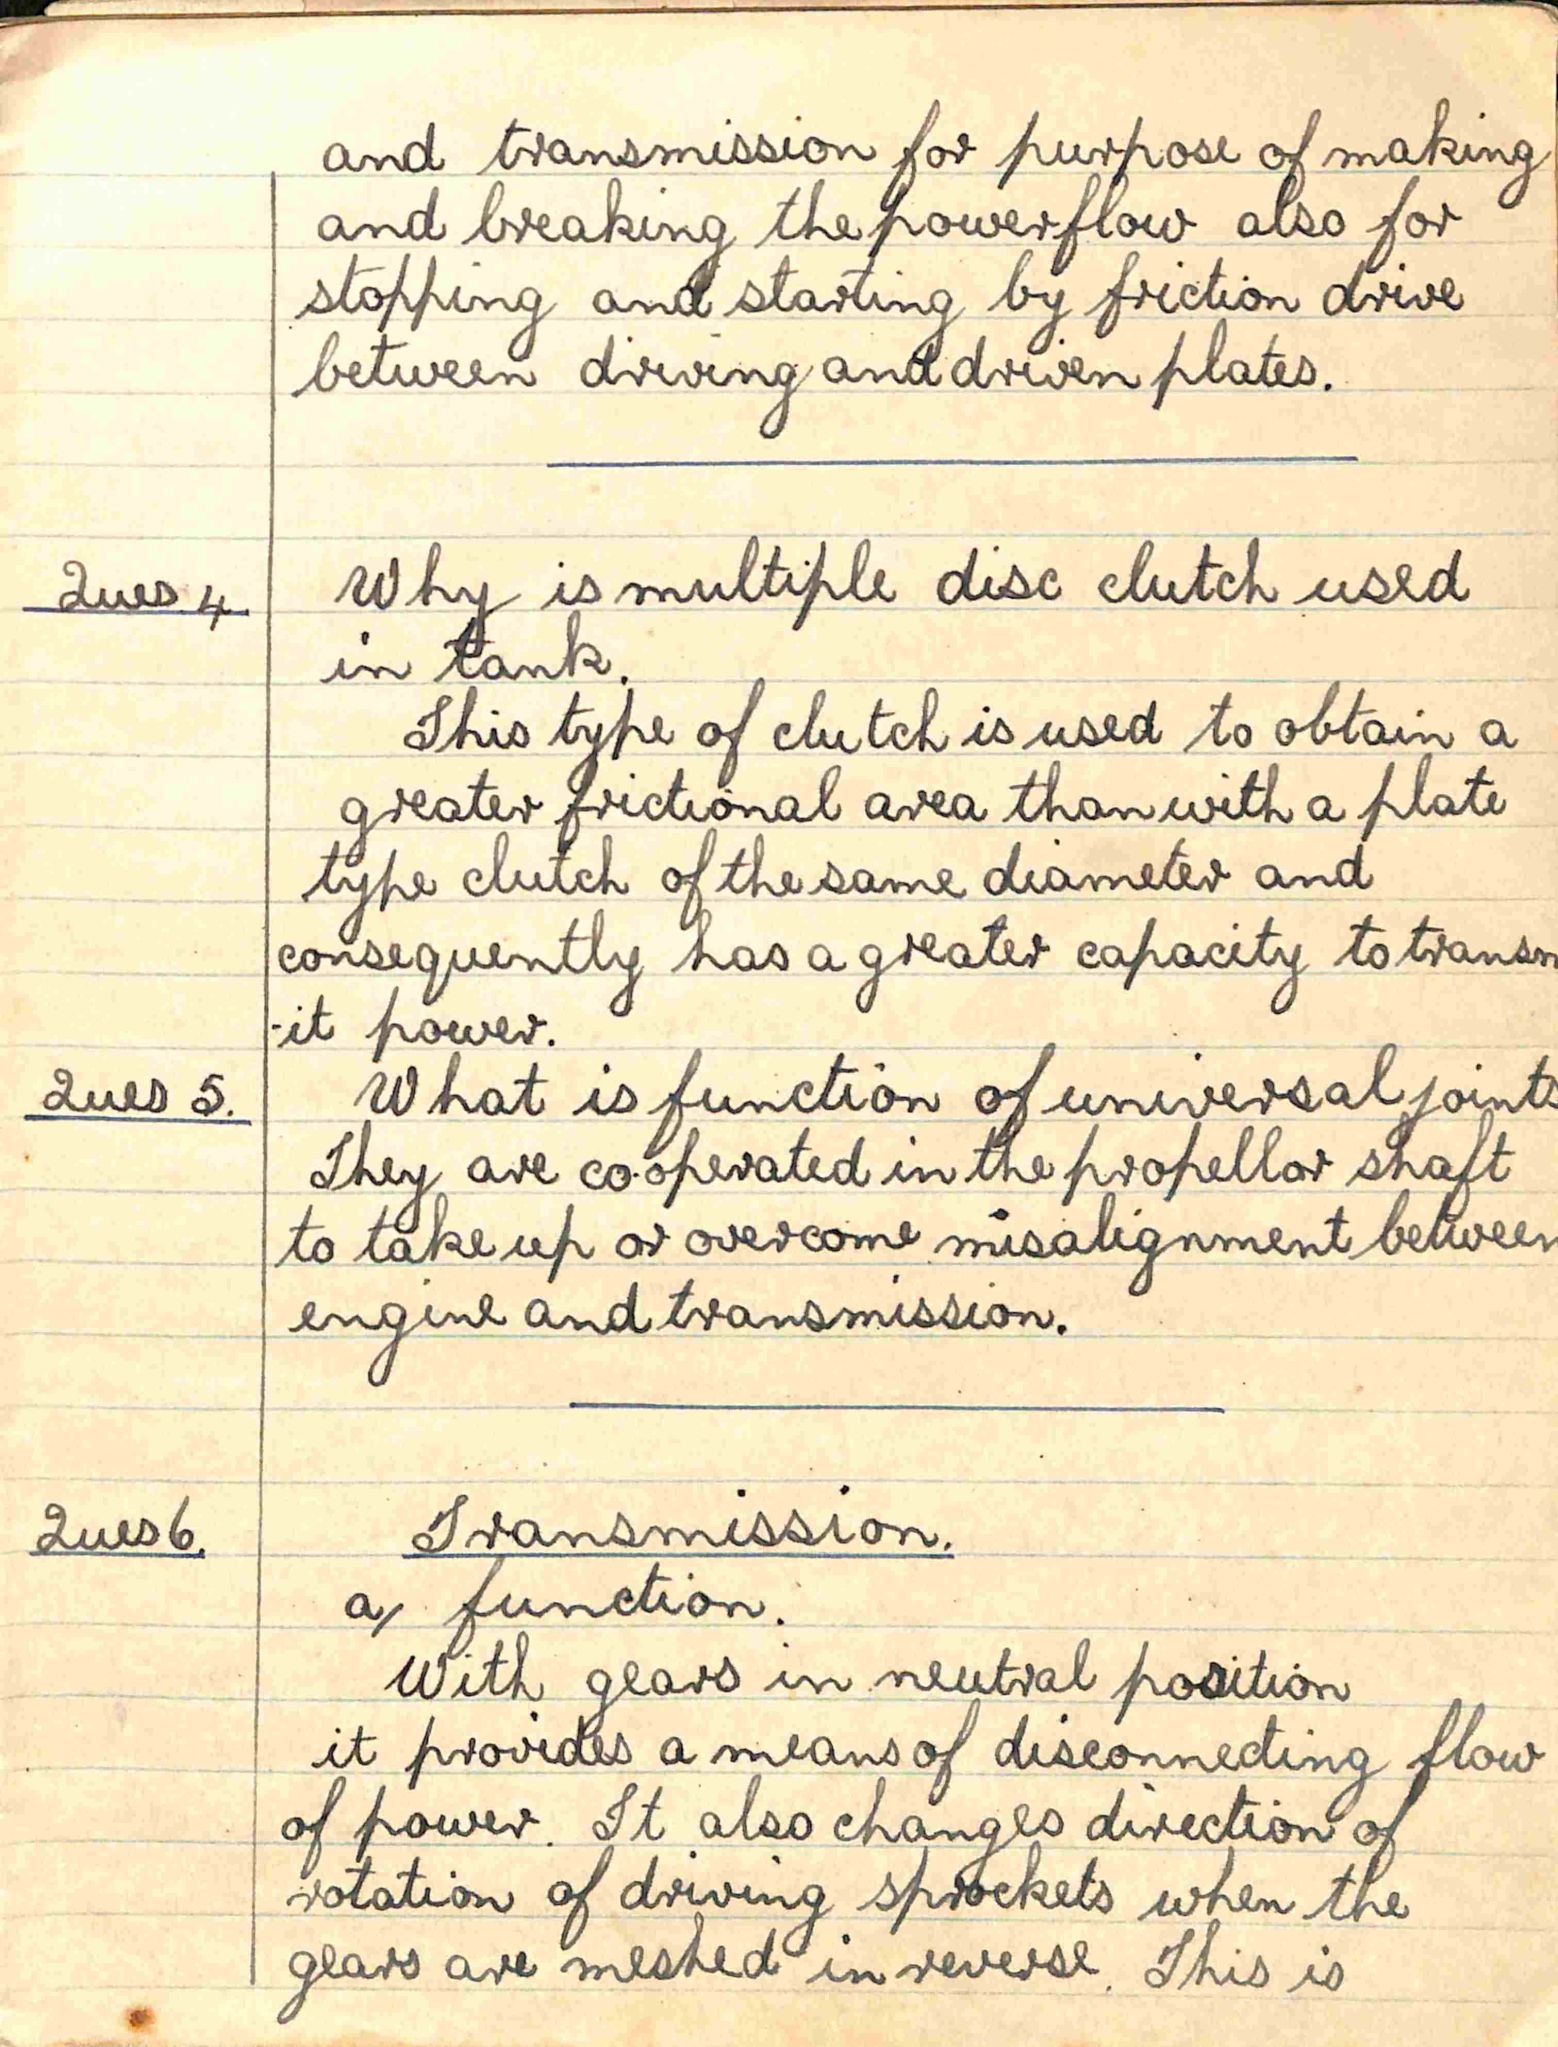 and transmission for purpose of making
and breaking the powerflow also for
stopping and starting by friction drive
between driving and driven plates.
Ques 4. Why is multiple disc clutch used
in tank.
This type of clutch is used to obtain a
greater frictional area than with a plate
type clutch of the same diameter and
consequently has a greater capacity to transm
-it power.
Ques 5. What is function of universal joints
They are co-operated in the propellor shaft
to take up or overcome misalignment between
engine and transmission.
Ques 6. Transmission.
a, function.
With gears in neutral position
it provides a means of disconnecting flow
of power. It also changes direction of
rotation of driving sprockets when the
gears are meshed in reverse. This is